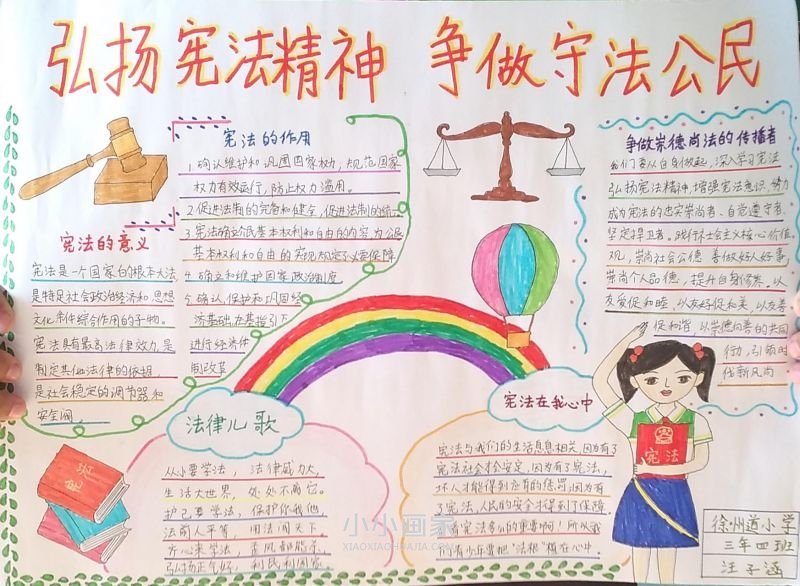 弘扬宪法精神 争做守法公民
宪法的作用
1.确认维护和巩固国家权力,规范国家
权力有效运行,防止权力滥用。
2.促进法制的完备和健全,促进法制的统一
3.宪法确立公民基本权利和自由的内容,为公民
基本权利和自由的实现规定了必要保障
4.确立和维护国家政治制度
5.确认,保护和巩固经
济基础,在其指引下
进行经济体
制改革
宪法的意义
宪法是一个国家的根本大法,
是特定社会政治经济和思想
文化条件综合作用的产物。
宪法具有最高法律效力,是
制定其他法律的依据,
是社会稳定的调节器和
安全阀
争做崇德尚法的传播者
我们要从自身做起,深入学习宪法
弘扬宪法精神,增强宪法意识,努力
成为宪法的忠实崇尚者、自觉遵守者、
坚定捍卫者。践行社会主义核心价值
观,崇尚社会公德,喜做好人好事,
崇尚个人品德,提升自身修养。以
友爱促和睦,以友好促和美,以友善
促和谐,以崇德向善的共同
行动,引领时
代新风尚
法律儿歌
从小要学法,法律威力大,
生活大世界,处处不离它。
护己要学法,保护你我他,
法前人平等,用法闯天下。
齐心来学法,
弘扬正气好,利民利国家
宪法在我心中
宪法与我们的生活息息相关,因为有了
宪法社会才会安定,因为有了宪法,
坏人才能得到应有的惩罚,因为有
了宪法,人民的安全才得到了保障。
宪法多么的重要啊!所以我
们青少年要把"法根"植在心中。
宪法
宪法
徐州道小学
三年四班
汪子涵
小小画家
XIAOXIAOHUAJIA.COM